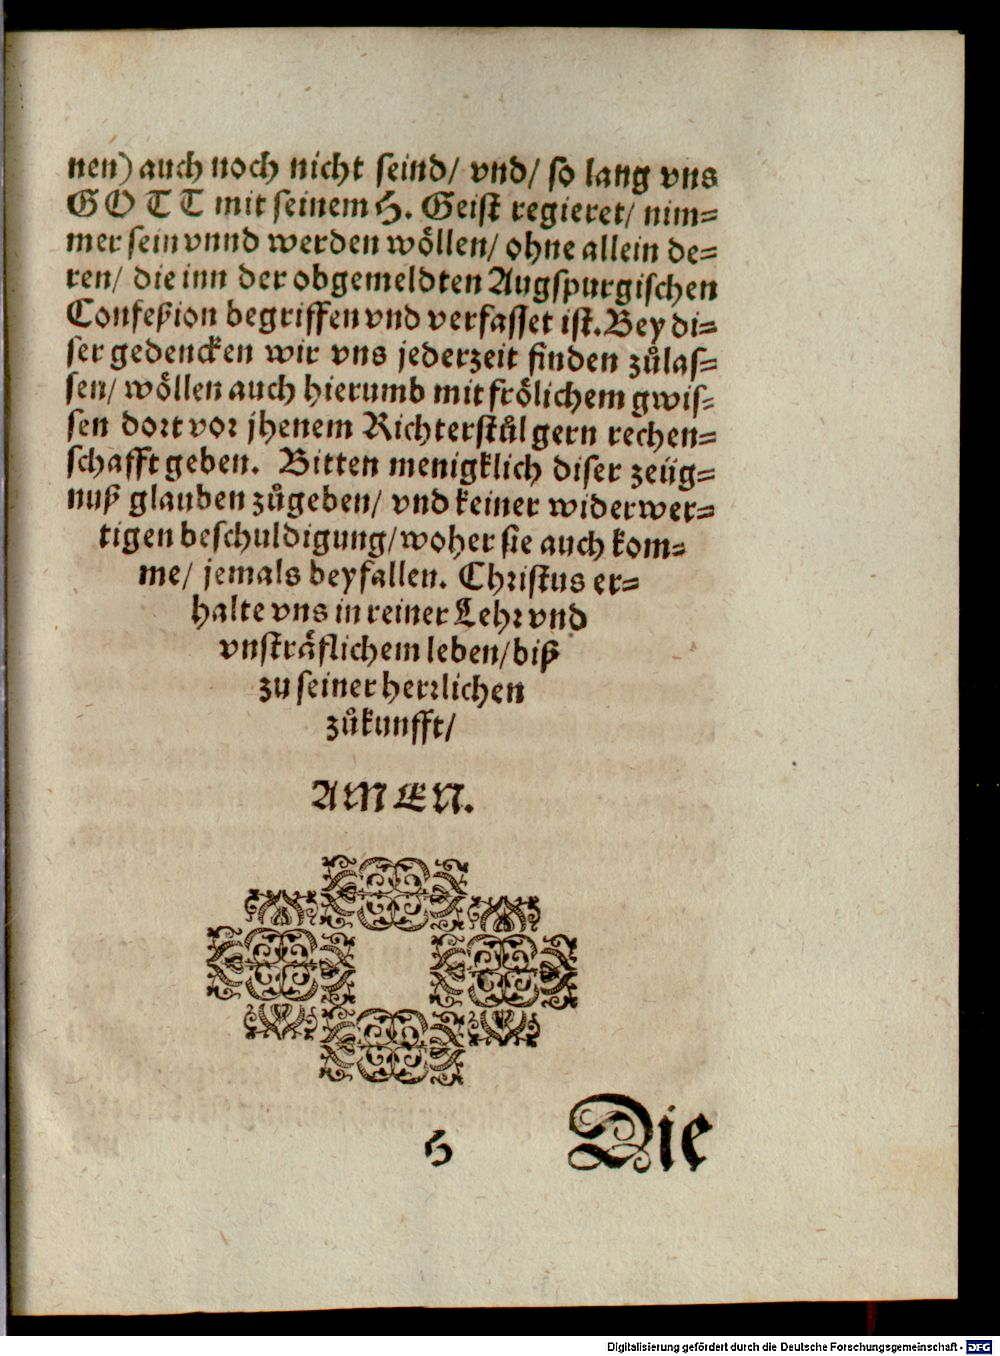 nen) auch noch nicht seind/ vnd/ so lang vns
GOTT mit seinem H. Geist regieret/ nim-
mer sein vnnd werden wöllen/ ohne allein de-
ren/ die inn der obgemeldten Augspurgischen
Confeßion begriffen vnd verfasset ist. Bey di-
ser gedencken wir vns jederzeit finden zůlas-
sen/ wöllen auch hierumb mit frölichem gwis-
sen dort vor jhenem Richterstůl gern rechen-
schafft geben. Bitten menigklich diser zeüg-
nuß glauben zůgeben/ vnd keiner widerwer-
tigen beschuldigung/ woher sie auch kom-
me/ jemals beyfallen. Christus er-
halte vns in reiner Lehr vnd
vnsträflichem leben/ biß
zu seiner herrlichen
zůkunfft/
AMEN.
H Die
Digitalisierung gefördert durch die Deutsche Forschungsgemeinschaft - DFG